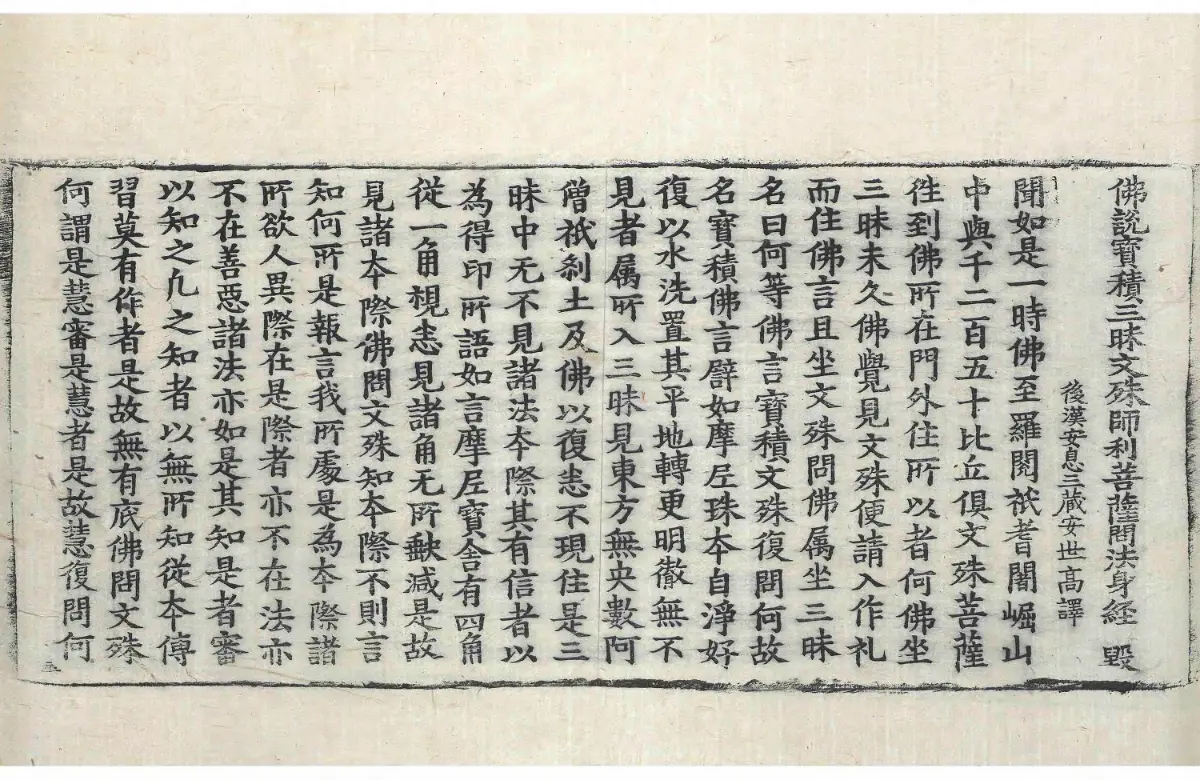 佛說寶積三昧文殊師利菩薩問法身經 毀
後漢安息三藏安世高譯
聞如是一時佛至羅閱祇耆闍崛山
中與千二百五十比丘俱文殊菩薩
徃到佛所在門外住所以者何佛坐
三昧未久佛覺見文殊便請入作礼
而住佛言且坐文殊問佛属坐三昧
名曰何等佛言寶積文殊復問何故
名寶積佛言譬如摩尼珠夲自淨好
復以水洗置其平地轉更明徹無不
見者属所入三昧見東方無央數阿
僧祇剎土及佛以復悉不現住是三
昧中无不見諸法夲際其有信者以
為得印所語如言摩尼寶舍有四角
從一角視悉見諸角无所缺減是故
見諸夲際佛問文殊知夲際不則言
知何所是報言我所處是為夲際諸
所欲人異際在是際者亦不在法亦
不在善惡諸法亦如是其知是者審
以知之凢之知者以無所知從夲傳
習莫有作者是故無有底佛問文殊
何謂是慧審是慧者是故慧復問何